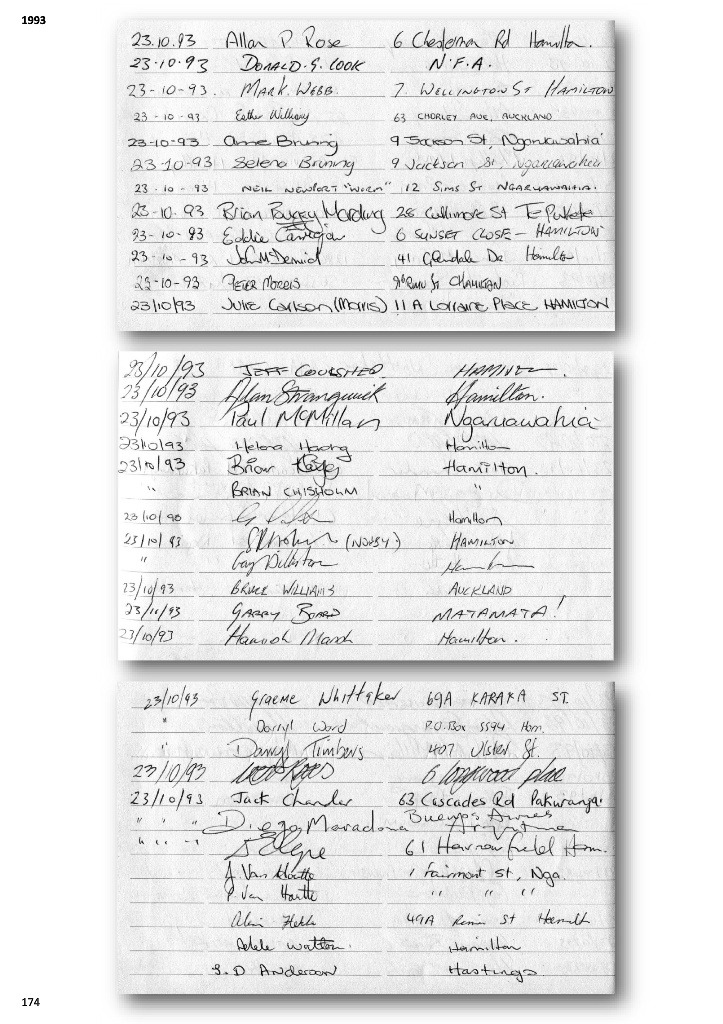 1993
23.10.93 Allan P Rose 6 Chesterman Rd Hamilton.
23-10-93 DONALD.G. COOK N.F.A.
23-10-93. MARK. WEBB. 7. WELLINGTON ST HAMILTON
23-10-93 Esther Williams 63 CHORLEY AVE, AUCKLAND
23-10-93 Anne Bruning 9 Jackson St, Ngaruawahia
23-10-93 Selena Bruning 9 Jackson St, Ngaruawahia
23-10-93 NEIL NEWPORT "WORM" 12 SIMS ST NGARUAWAHIA.
23-10.93 Brian Harding 28 Cullimore St Te Puke
23-10-93 Eddie Carrigan 6 SUNSET CLOSE - HAMILTON
23-10-93 John McDermid 41 Glendale Hamilton
23-10-93 PETER MORRIS ST HAMILTON
23/10/93 JULIE Carlson (Morris) 11 A Lorraine Place HAMILTON
23/10/93 JEFF COULSHED.
23/10/93 Alan Strangwick Hamilton.
23/10/93 Paul McMillan Ngaruawahia
23/10/93 Helena Hamilton
23/10/93 Brian Hamilton.
" BRIAN CHISHOLM "
23/10/90 Hamilton
23/10/93 (NOBBY) HAMILTON
" Gary
23/10/93 BRUCE WILLIAMS AUCKLAND
23/10/93 GARRY BOARD MATAMATA!
23/10/93 Hamish Marsh Hamilton.
23/10/93 Graeme Whittaker 69A KARAKA ST.
" Darryl Ward P.O.Box 5594 Ham.
" Darryl Timbers 407 Ulster St.
23/10/93 6 place
23/10/93 Jack Chandler 63 Cascades Rd Pakuranga.
" " " Diego Maradona Buenos Aires Argentina
" " " 61 Harrowfield Ham.
J. Van Houtte 1 Fairmont st, Nga.
P. Van Houtte " " "
49A St Hamilt
Adele Watton. Hamilton
S.D Anderson Hastings
174